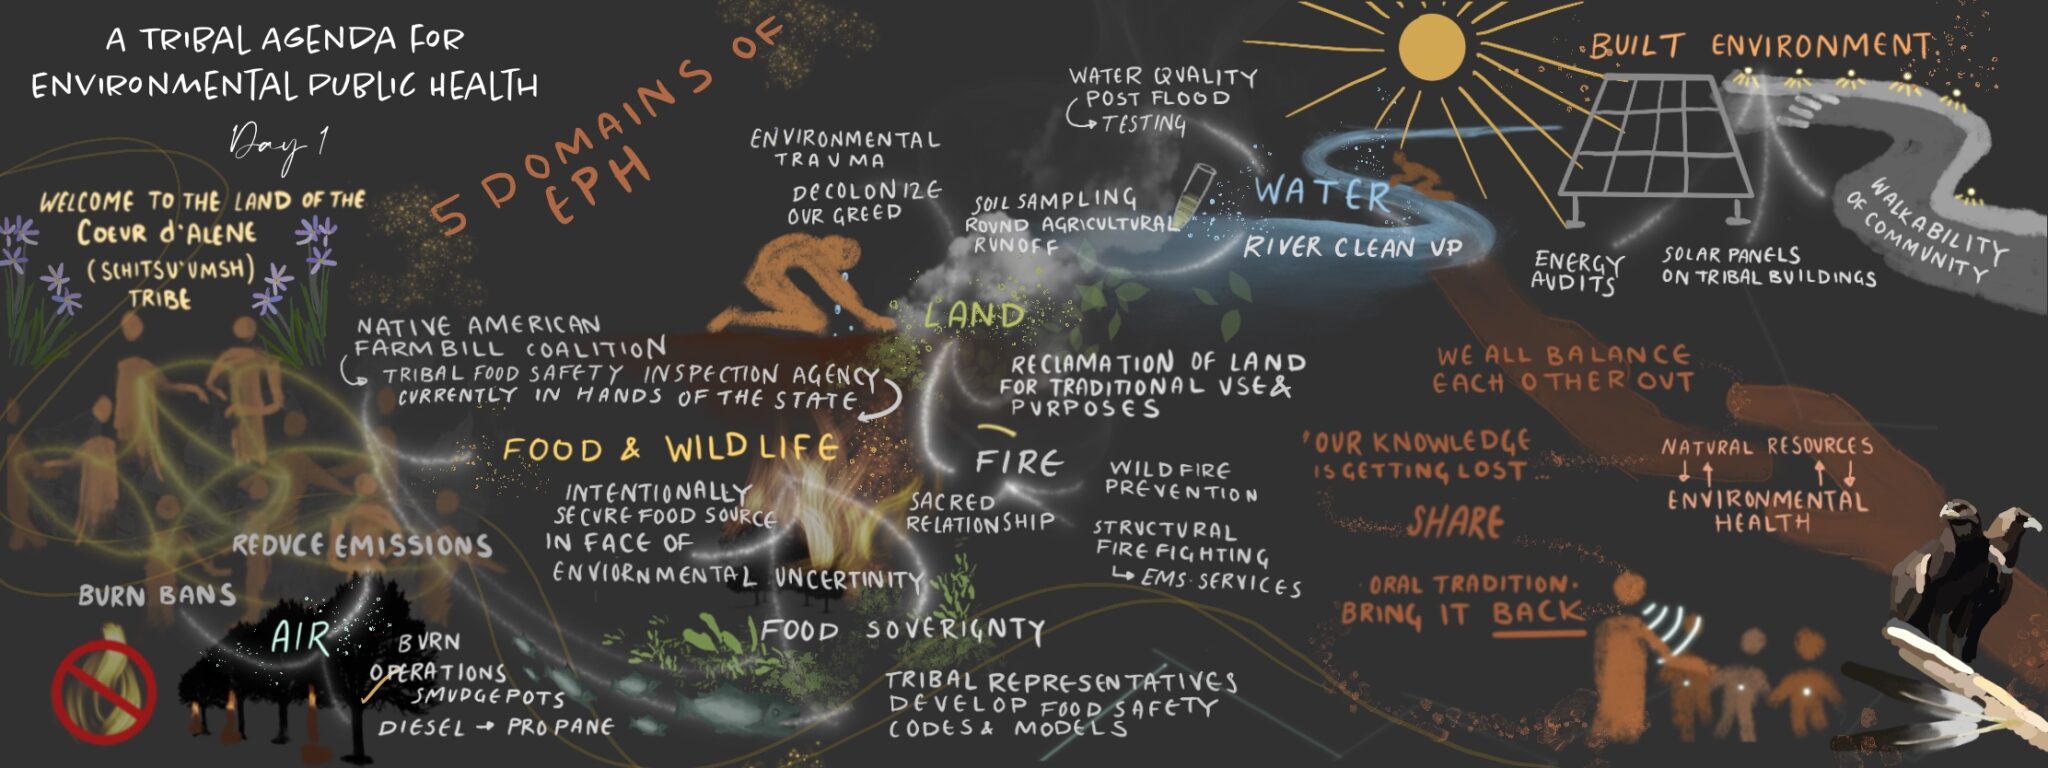 A TRIBAL AGENDA FOR
ENVIRONMENTAL PUBLIC HEALTH
Day 1
WELCOME TO THE LAND OF THE
COEUR d'ALENE
(SCHITSU'UMSH)
TRIBE
5 DOMAINS OF
EPH
NATIVE AMERICAN
FARM BILL COALITION
TRIBAL FOOD SAFETY INSPECTION AGENCY
CURRENTLY IN HANDS OF THE STATE
FOOD & WILDLIFE
INTENTIONALLY
SECURE FOOD SOURCE
IN FACE OF
ENVIORNMENTAL UNCERTINITY
FOOD SOVERIGNTY
TRIBAL REPRESENTATIVES
DEVELOP FOOD SAFETY
CODES & MODELS
REDUCE EMISSIONS
BURN BANS
AIR
BURN
OPERATIONS
SMUDGEPOTS
DIESEL → PROPANE
ENVIRONMENTAL
TRAUMA
DECOLONIZE
OUR GREED
LAND
SOIL SAMPLING
ROUND AGRICULTURAL
RUNOFF
RECLAMATION OF LAND
FOR TRADITIONAL USE &
PURPOSES
FIRE
SACRED
RELATIONSHIP
WILDFIRE
PREVENTION
STRUCTURAL
FIRE FIGHTING
↳ EMS SERVICES
WATER QUALITY
POST FLOOD
TESTING
WATER
RIVER CLEAN UP
BUILT ENVIRONMENT
ENERGY
AUDITS
SOLAR PANELS
ON TRIBAL BUILDINGS
WALKABILITY
OF COMMUNITY
WE ALL BALANCE
EACH OTHER OUT
'OUR KNOWLEDGE
IS GETTING LOST...
SHARE
ORAL TRADITION.
BRING IT BACK
NATURAL RESOURCES
↓↑ ↑↓
ENVIRONMENTAL
HEALTH